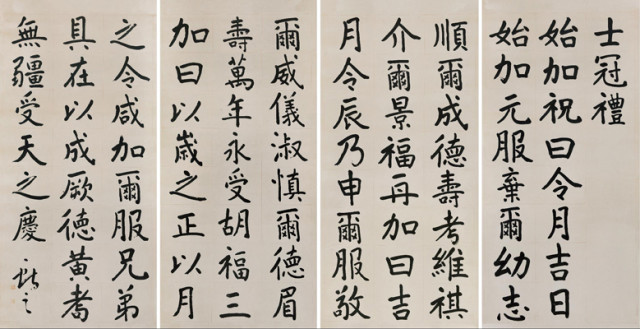 士冠禮
始加祝曰令月吉日
始加元服棄爾幼志
順爾成德壽考維祺
介爾景福再加曰吉
月令辰乃申爾服敬
爾威儀淑慎爾德眉
壽萬年永受胡福三
加曰以歲之正以月
之令咸加爾服兄弟
具在以成厥德黃耇
無疆受天之慶